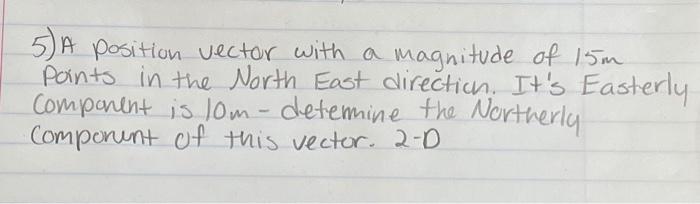 5) A position vector with a magnitude of 15m
points in the North East direction. It's Easterly
Component is 10m - determine the Northerly
Component of this vector. 2-D